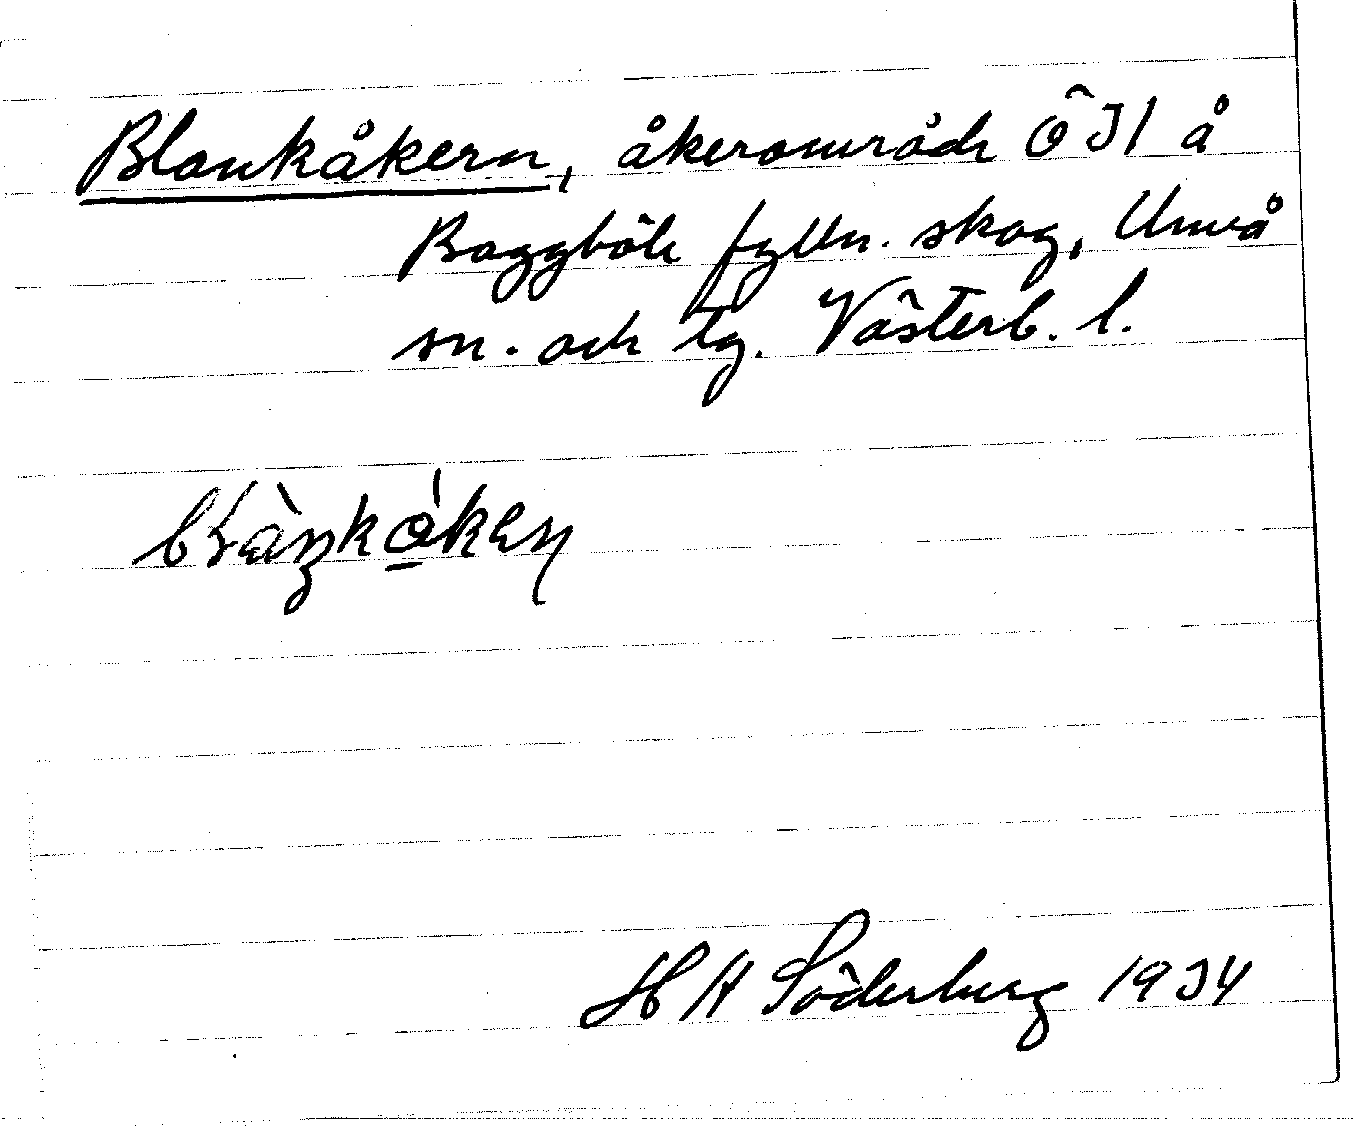 Blankåkern, åkerområde Ö31 å
Baggböle fzlln. skog, Umeå
sn. och tg. Västerb. l.
H A Söderberg 1934